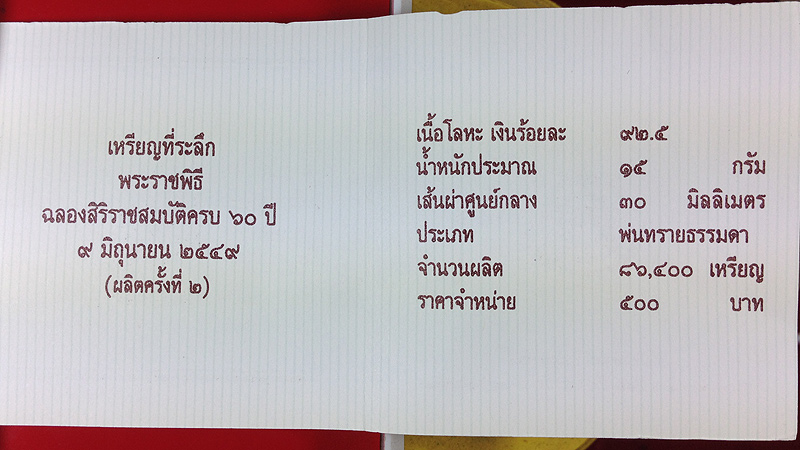 เหรียญที่ระลึก
พระราชพิธี
ฉลองสิริราชสมบัติครบ ๖๐ ปี
๙ มิถุนายน ๒๕๔๙
(ผลิตครั้งที่ ๒)
เนื้อโลหะ เงินร้อยละ ๙๒.๕
น้ำหนักประมาณ ๑๕ กรัม
เส้นผ่าศูนย์กลาง ๓๐ มิลลิเมตร
ประเภท พ่นทรายธรรมดา
จำนวนผลิต ๘๖,๔๐๐ เหรียญ
ราคาจำหน่าย ๕๐๐ บาท